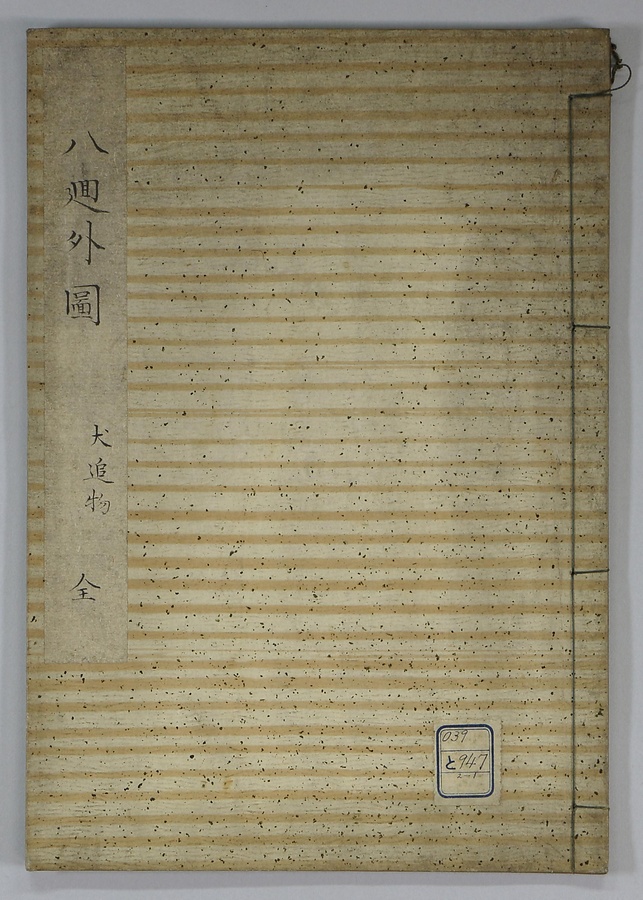 八廻外圖
犬追物
全
039
と947
2-1